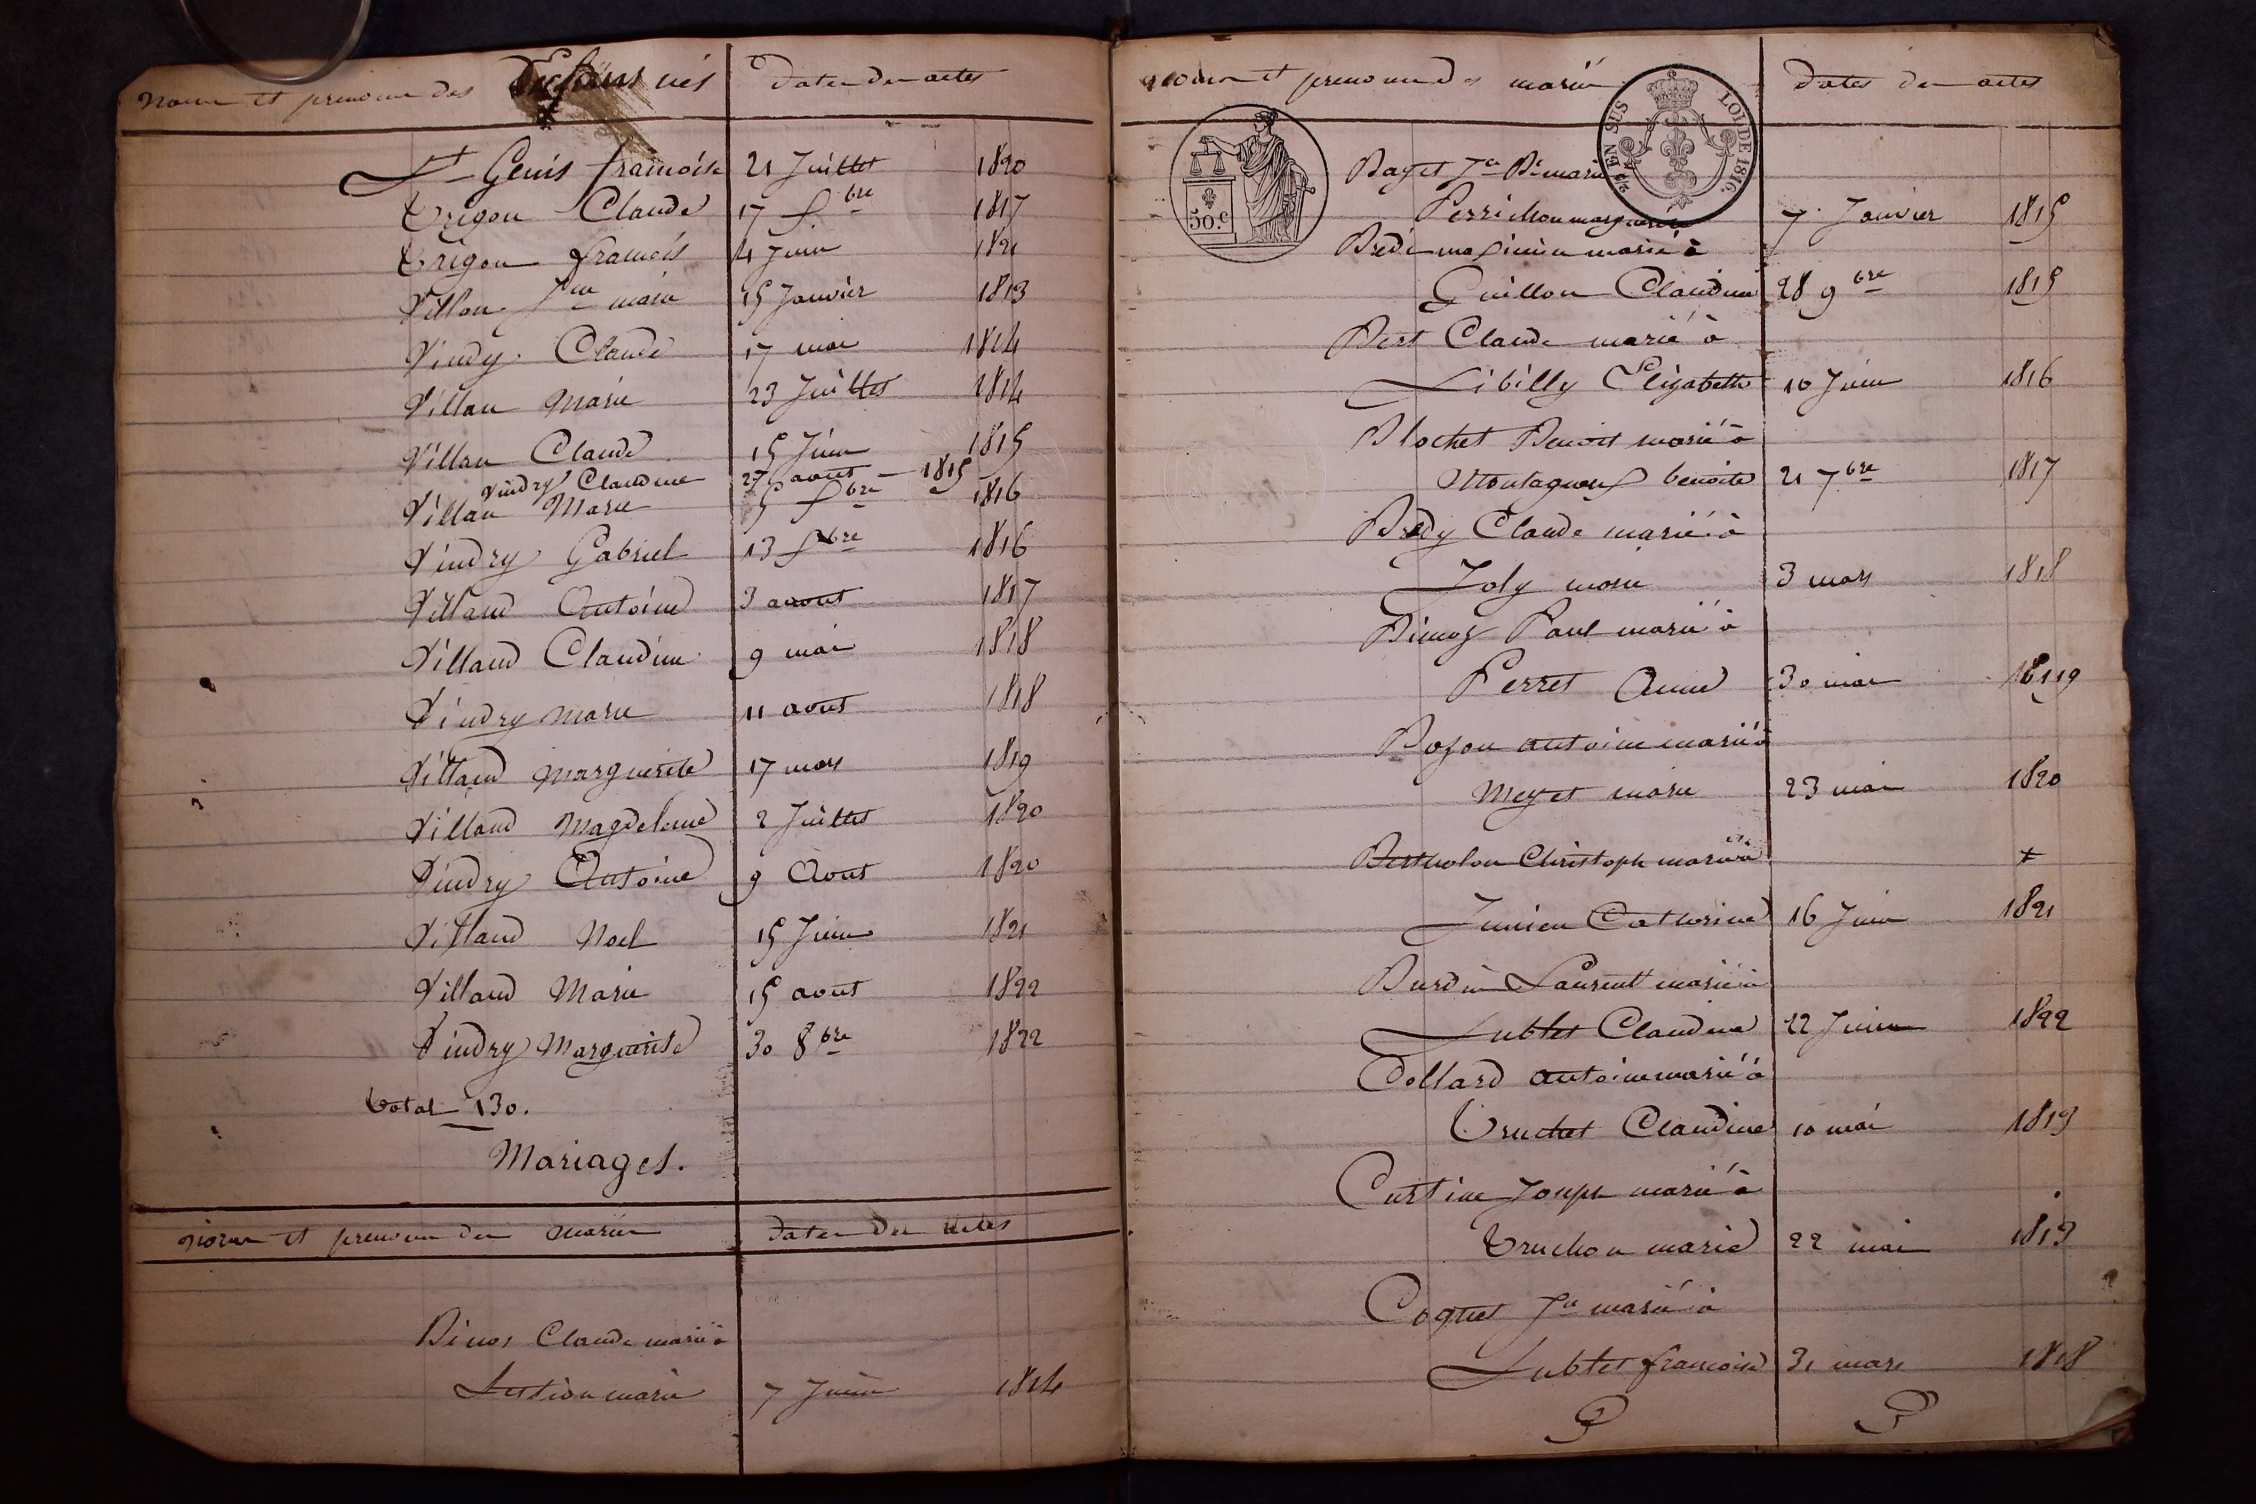 noms et prenoms des Enfans nés Dates des actes
St Genis francoise 21 Juillet 1820
Trigon Claude 17 fbre 1817
Trigon francois 4 Juin 1821
Villan Jne marie 15 Janvier 1813
Vindy Claude 17 mai 1814
Villan Marie 23 Juillet 1814
Villan Claude 15 Juin 1815
Vindry Claudine 27 aout - 1815
Villan Marie 5 fbre 1816
Vindry Gabriel 13 fbre 1816
Villand Antoine 3 aout 1817
Villand Claudine 9 mai 1818
Vindry marie 11 aout 1818
Villand Marguerite 17 mars 1819
Villand Magdeleine 2 Juillet 1820
Vindry Antoine 9 Aout 1820
Villand Noel 15 Juin 1821
Villand Marie 15 aout 1822
Vindry Marguerite 30 8bre 1822
total 130.
Mariages.
noms et prenoms des mariés dates des actes
Binos Claude marié à
marie 7 Juin 1814
noms et prenoms des mariés dates des actes
EN SUS
LOI DE 1816.
50.c
Baget Jn Bte marié
Perrichon marguerite 7 Janvier 1815
Bredi maximin marié à
Guillon Claudine 28 9bre 1815
Bert Claude marié à
Sibilly Elizabeth 10 Juin 1816
Blochet Benoit marié à
Montagneux benoite 21 7bre 1817
Bredy Claude marié à
Joly marie 3 mars 1818
Paul marié à
Perret Anne 30 mai 1819
Bojon antoine marié à
Meyet marie 23 mai 1820
Bertholon Christoph marié à +
Junien Catherine 16 Juin 1821
Burdin Laurent marié à
Lublet Claudine 12 Juin 1822
Collard antoine marié à
Truchet Claudine 10 mai 1813
Curtine Joseph marié à
Truchon marie 22 mai 1813
Coquet Jn marié à
Lublet francoise 31 mars 1818